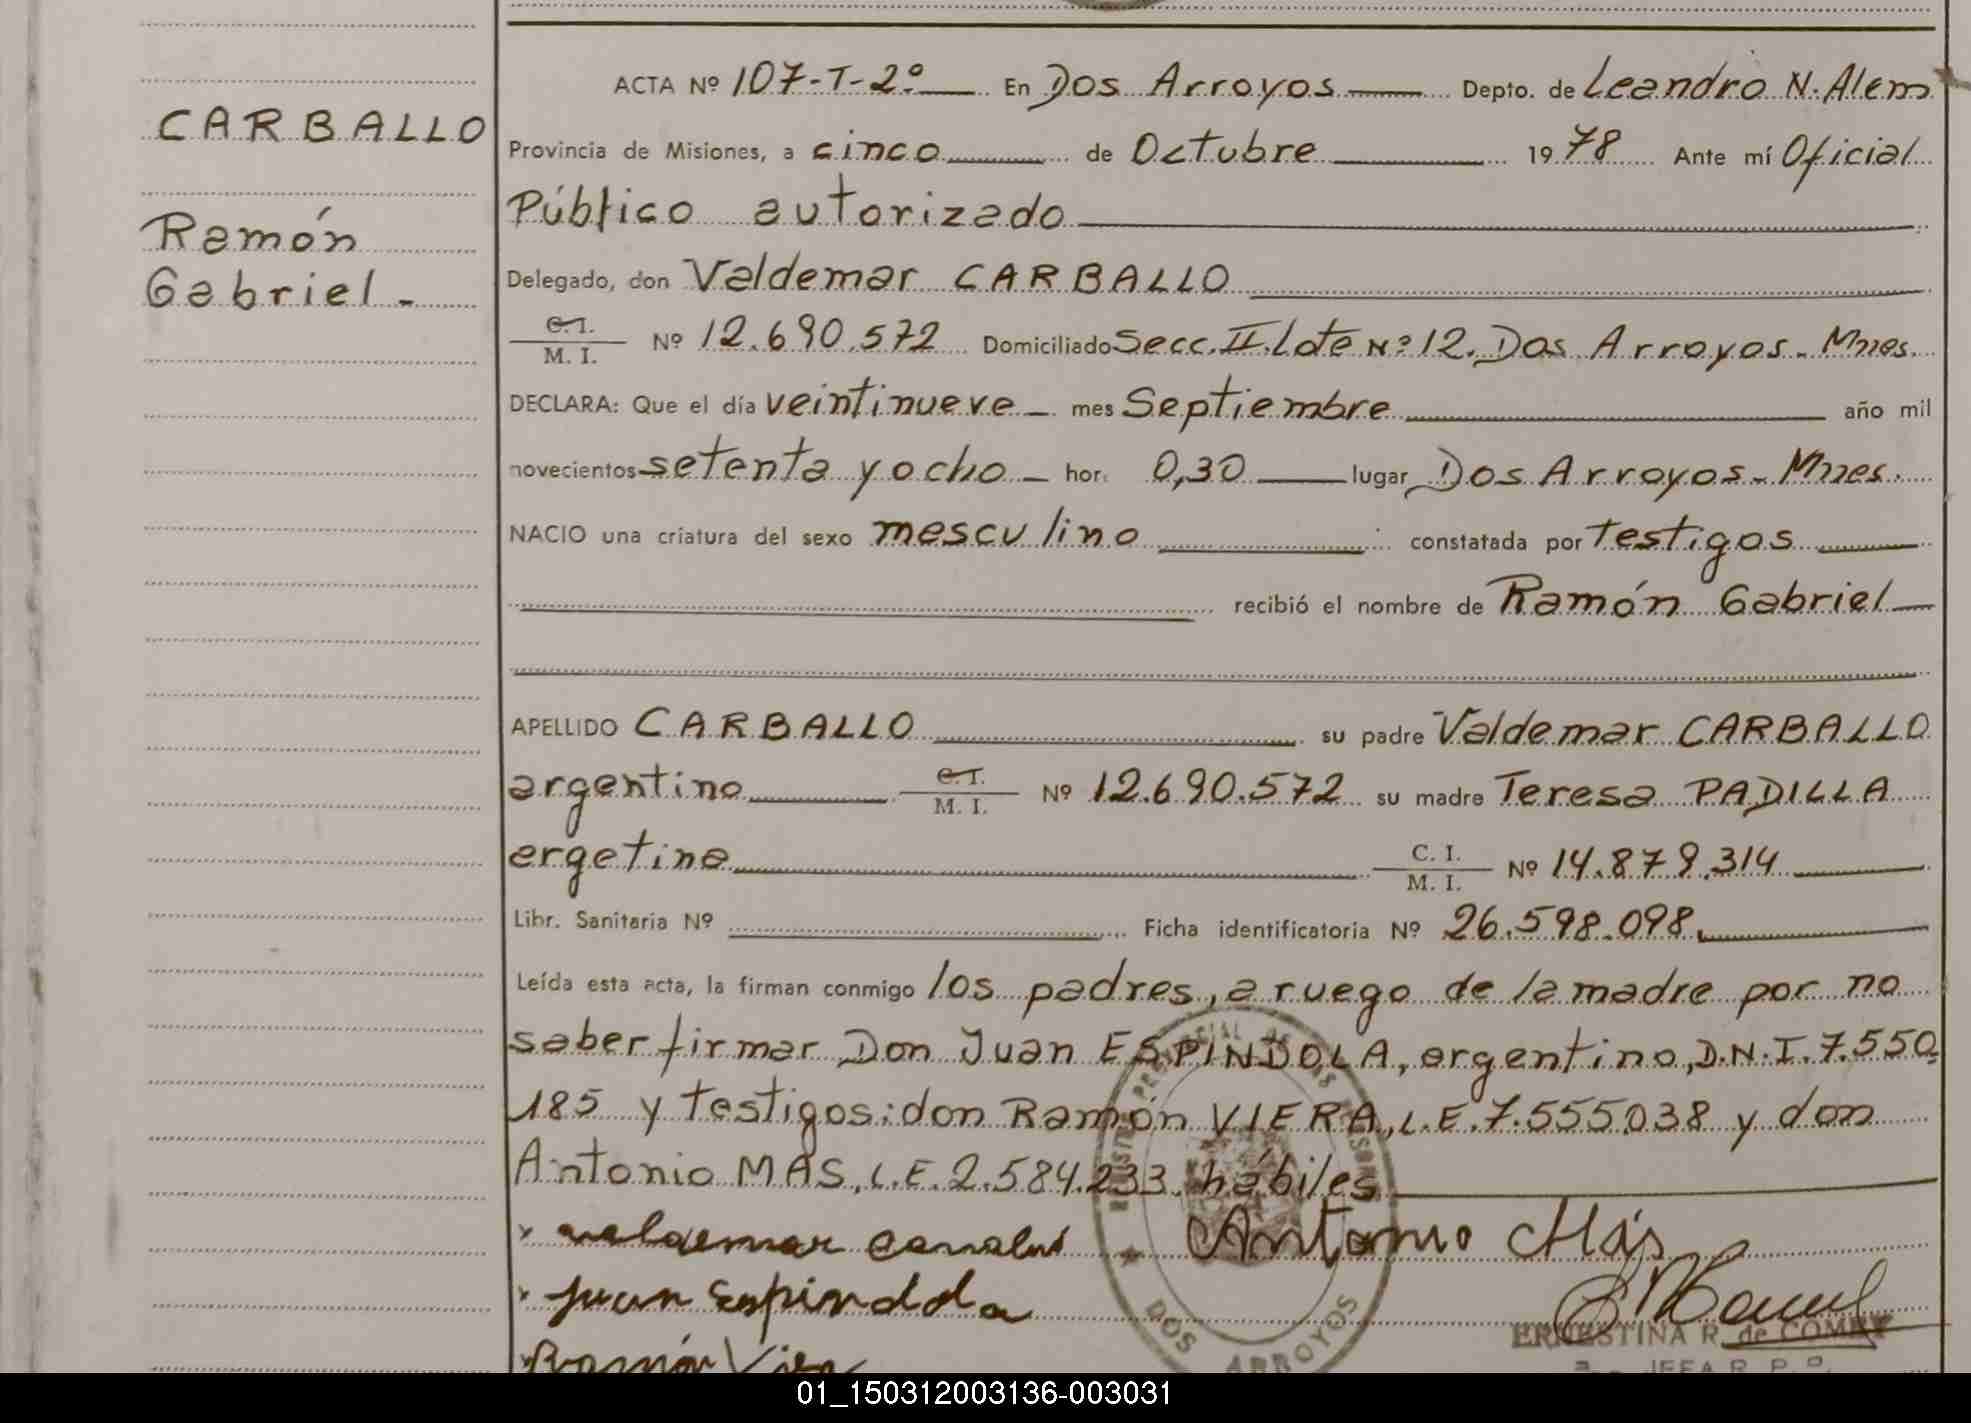 CARBALLO
Ramón
Gabriel.-
ACTA Nº 107-T-2º En Dos Arroyos Depto. de Leandro N. Alem
Provincia de Misiones, a cinco de Octubre 1978 Ante mí Oficial
Público autorizado
Delegado, don Valdemar CARBALLO
C.I.
M. I. Nº 12.690.572 Domiciliado Secc. II. Lote Nº 12. Dos Arroyos.- Mnes.
DECLARA: Que el día veintinueve mes Septiembre año mil
novecientos setenta y ocho hor. 0,30 lugar Dos Arroyos.- Mnes.
NACIO una criatura del sexo mesculino constatada por testigos
recibió el nombre de Ramón Gabriel
APELLIDO CARBALLO su padre Valdemar CARBALLO
argentino C.I. M. I. Nº 12.690.572 su madre Teresa PADILLA
ergetina C. I. M. I. Nº 14.879.314
Libr. Sanitaria Nº Ficha identificatoria Nº 26.598.098.
Leída esta acta, la firman conmigo los padres, a ruego de la madre por no
saber firmar Don Juan ESPINDOLA, argentino, D.N.I. 7.550-
185 y testigos: don Ramón VIERA, L.E. 7.555038 y don
Antonio MAS, L.E. 2.584.233. hábiles
valdemar Antonio Más
Juan Espindola
ERNESTINA R. de
Ramón
JEFA R. P.
DOS ARROYOS
01_150312003136-003031